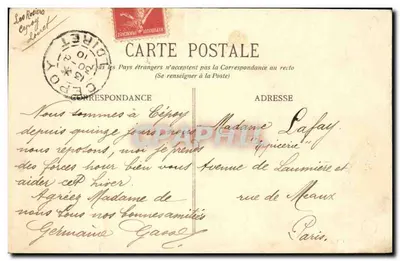 Les Rosiers
Cepoy
Loiret
CEPOY
LOIRET
CARTE POSTALE
les Pays étrangers n'acceptent pas la Correspondance au recto
(Se renseigner à la Poste)
CORRESPONDANCE
Nous sommes à Cépoy
depuis quinze jours nous
nous reposons, moi je prends
des forces pour bien vous
aider cet hiver.
Agréez Madame de
nous tous nos bonnes amitiés
Germaine
ADRESSE
Madame Lafay
Epicerie
Avenue de Laumière et
rue de Meaux
Paris.